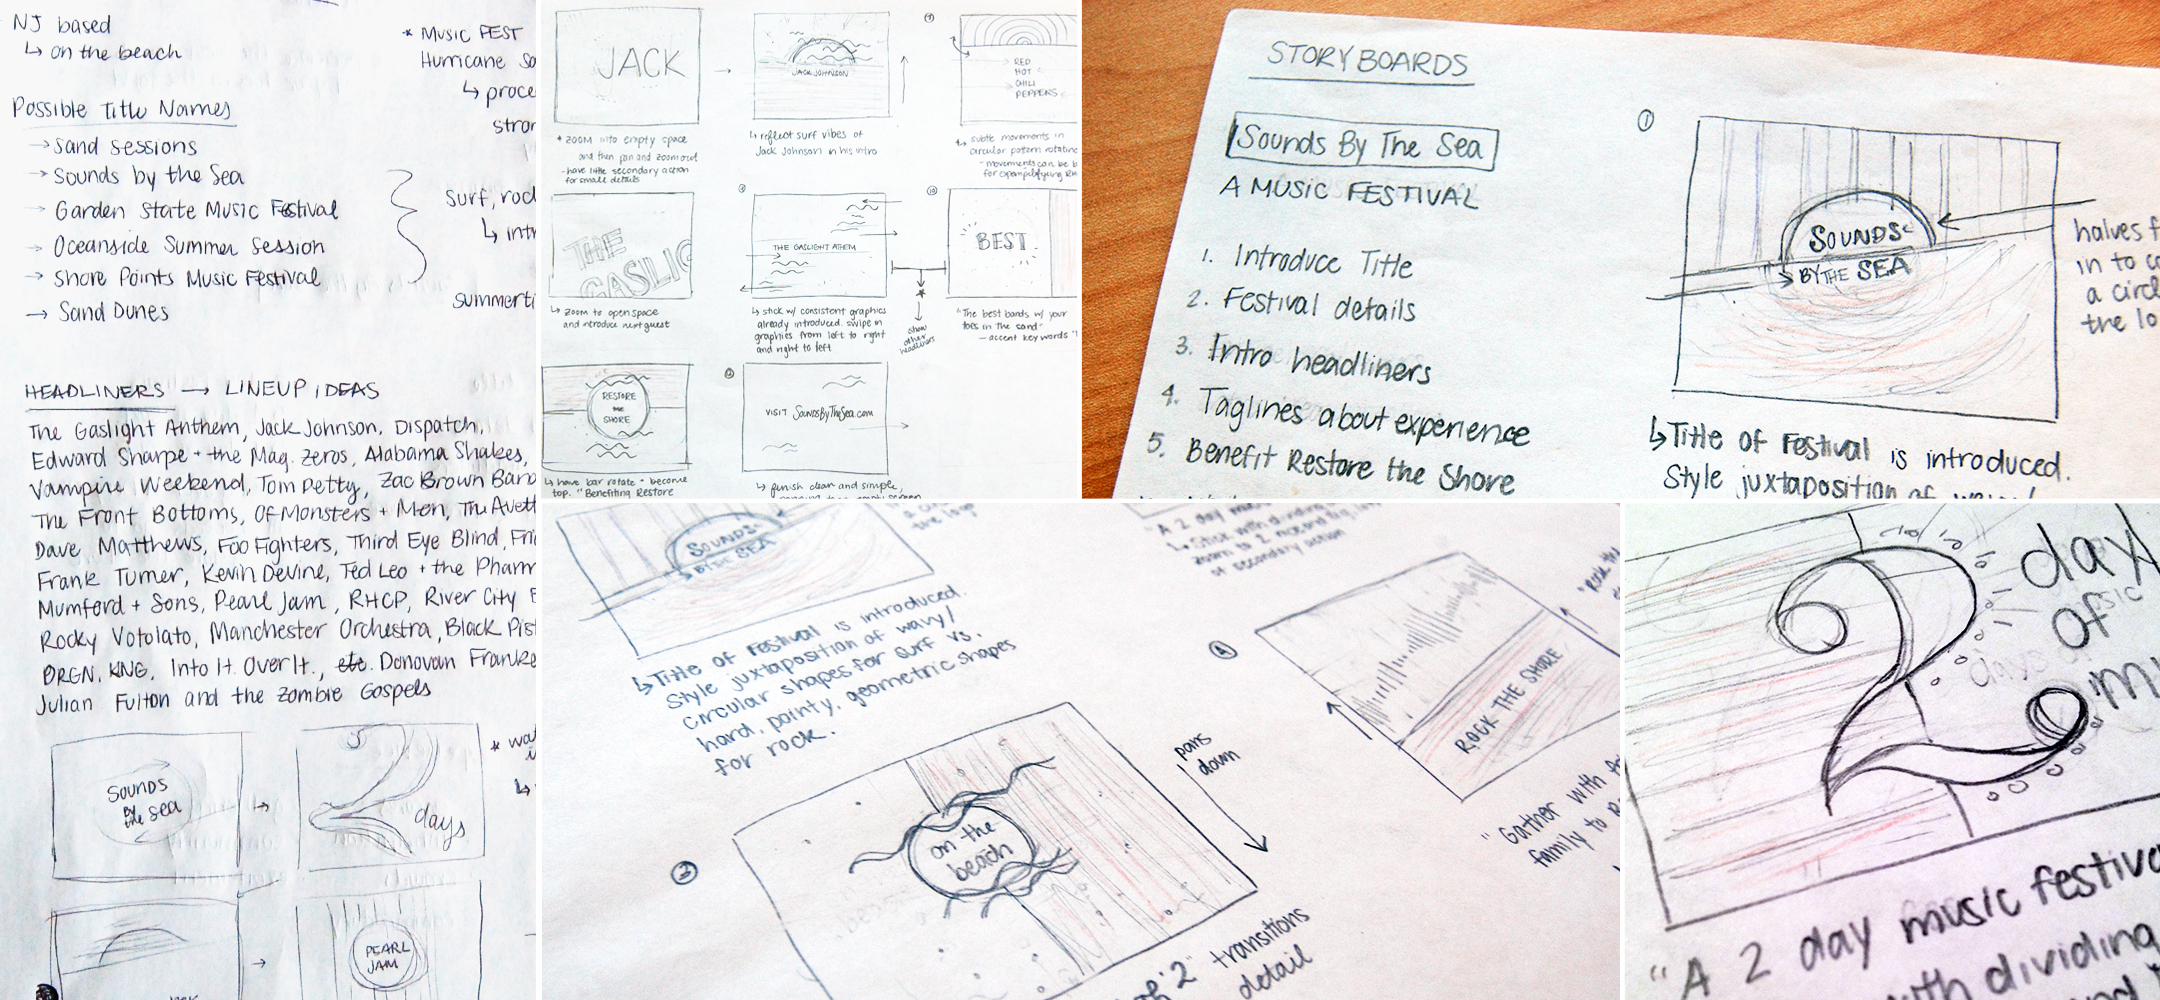 NJ based
↳ on the beach
Possible Title Names
→ Sand sessions
→ Sounds by the Sea
→ Garden State Music Festival
→ Oceanside Summer Session
→ Shore Points Music Festival
→ Sand Dunes
* MUSIC FEST
Hurricane
↳
Surf,
↳
HEADLINERS → LINEUP IDEAS
The Gaslight Anthem, Jack Johnson, Dispatch,
Edward Sharpe + the Mag. Zeros, Alabama Shakes,
Vampire Weekend, Tom Petty, Zac Brown
The Front Bottoms, Of Monsters + Men, The
Dave Matthews, Foo Fighters, Third Eye Blind,
Frank Turner, Kevin Devine, Ted Leo + the
Mumford + Sons, Pearl Jam, RHCP, River City
Rocky Votolato, Manchester Orchestra, Black
DRGN KNG, Into It. Over It., etc. Donovan
Julian Fulton and the Zombie Gospels
Sounds
by
the sea
2
days
PEARL
JAM
JACK
* ZOOM into empty space
and then pan and zoom out
- have little secondary action
for small details
JACK JOHNSON
↳ reflect surf vibes of
Jack Johnson in his intro
RED
HOT
CHILI
PEPPERS
↳ subtle movements in
circular pattern
- movements can be
for exemplifying
THE
GASLIG
↳ Zoom to open space
and introduce next guest
THE GASLIGHT ATHEM
↳ stick w/ consistent graphics
already introduced. swipe in
graphics from left to right
and right to left
show
other
headliners
10
BEST
"The best bands w/ your
toes in the sand"
- accent key words
RESTORE
the
SHORE
↳ have bar rotate + become
top. "Benefiting Restore
VISIT SoundsByTheSea.com
↳ finish clean and simple,
STORYBOARDS
Sounds By The Sea
A MUSIC FESTIVAL
1. Introduce Title
2. Festival details
3. Intro headliners
4. Taglines about experience
5. Benefit Restore the Shore
1
SOUNDS
BY THE SEA
halves
in to
a
the
↳ Title of Festival is introduced.
Style juxtaposition of wavy/
SOUNDS
BY THE SEA
↳ Title of Festival is introduced.
Style juxtaposition of wavy/
circular shapes for surf vs.
hard, pointy, geometric shapes
for rock.
"A 2 day
↳ Stick with
zoom to 2
of secondary action
3
on the
beach
pans
down
"2" transitions
detail
4
ROCK THE SHORE
"Gather with
family to
2
day
of
"A 2 day music
with dividing